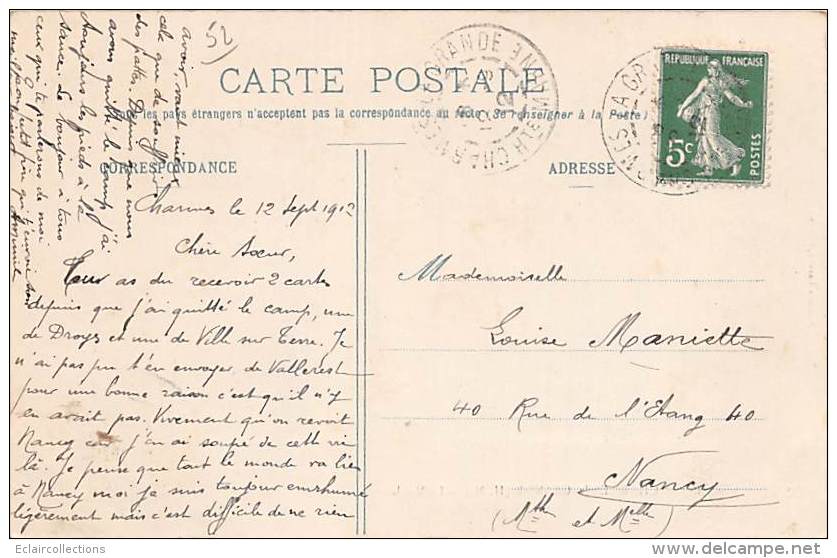 52
CARTE POSTALE
Tous les pays étrangers n'acceptent pas la correspondance au recto (Se renseigner à la Poste)
CORRESPONDANCE
ADRESSE
RÉPUBLIQUE FRANÇAISE
5c
POSTES
Charmes le 12 Sept 1912
Chère Sœur,
Tu as du recevoir 2 cartes
depuis que j'ai quitté le camp, une
de Droyes et une de Ville sur Terre. Je
n'ai pas pu t'en envoyer de Vallerest
pour une bonne raison c'est qu'il n'y
en avait pas. Vivement qu'on revoit
Nancy car j'en ai soupé de cette vie
là. Je pense que tout le monde va bien
à Nancy moi je suis toujours enrhumé
légèrement mais c'est difficile de ne rien
avoir, vaut mieux
cela que de souffrir
des pattes. Depuis que nous
avons quitté le camp j'ai
toujours les pieds à la
sauce. Le bonjour à tous
ceux qui te parleront de moi
Ton petit frère qui t'envoie ses
Mademoiselle
Louise Maniette
40 Rue de l'Etang 40
Nancy
(Mthe et Melle)
Eclaircollections
delcampe.net